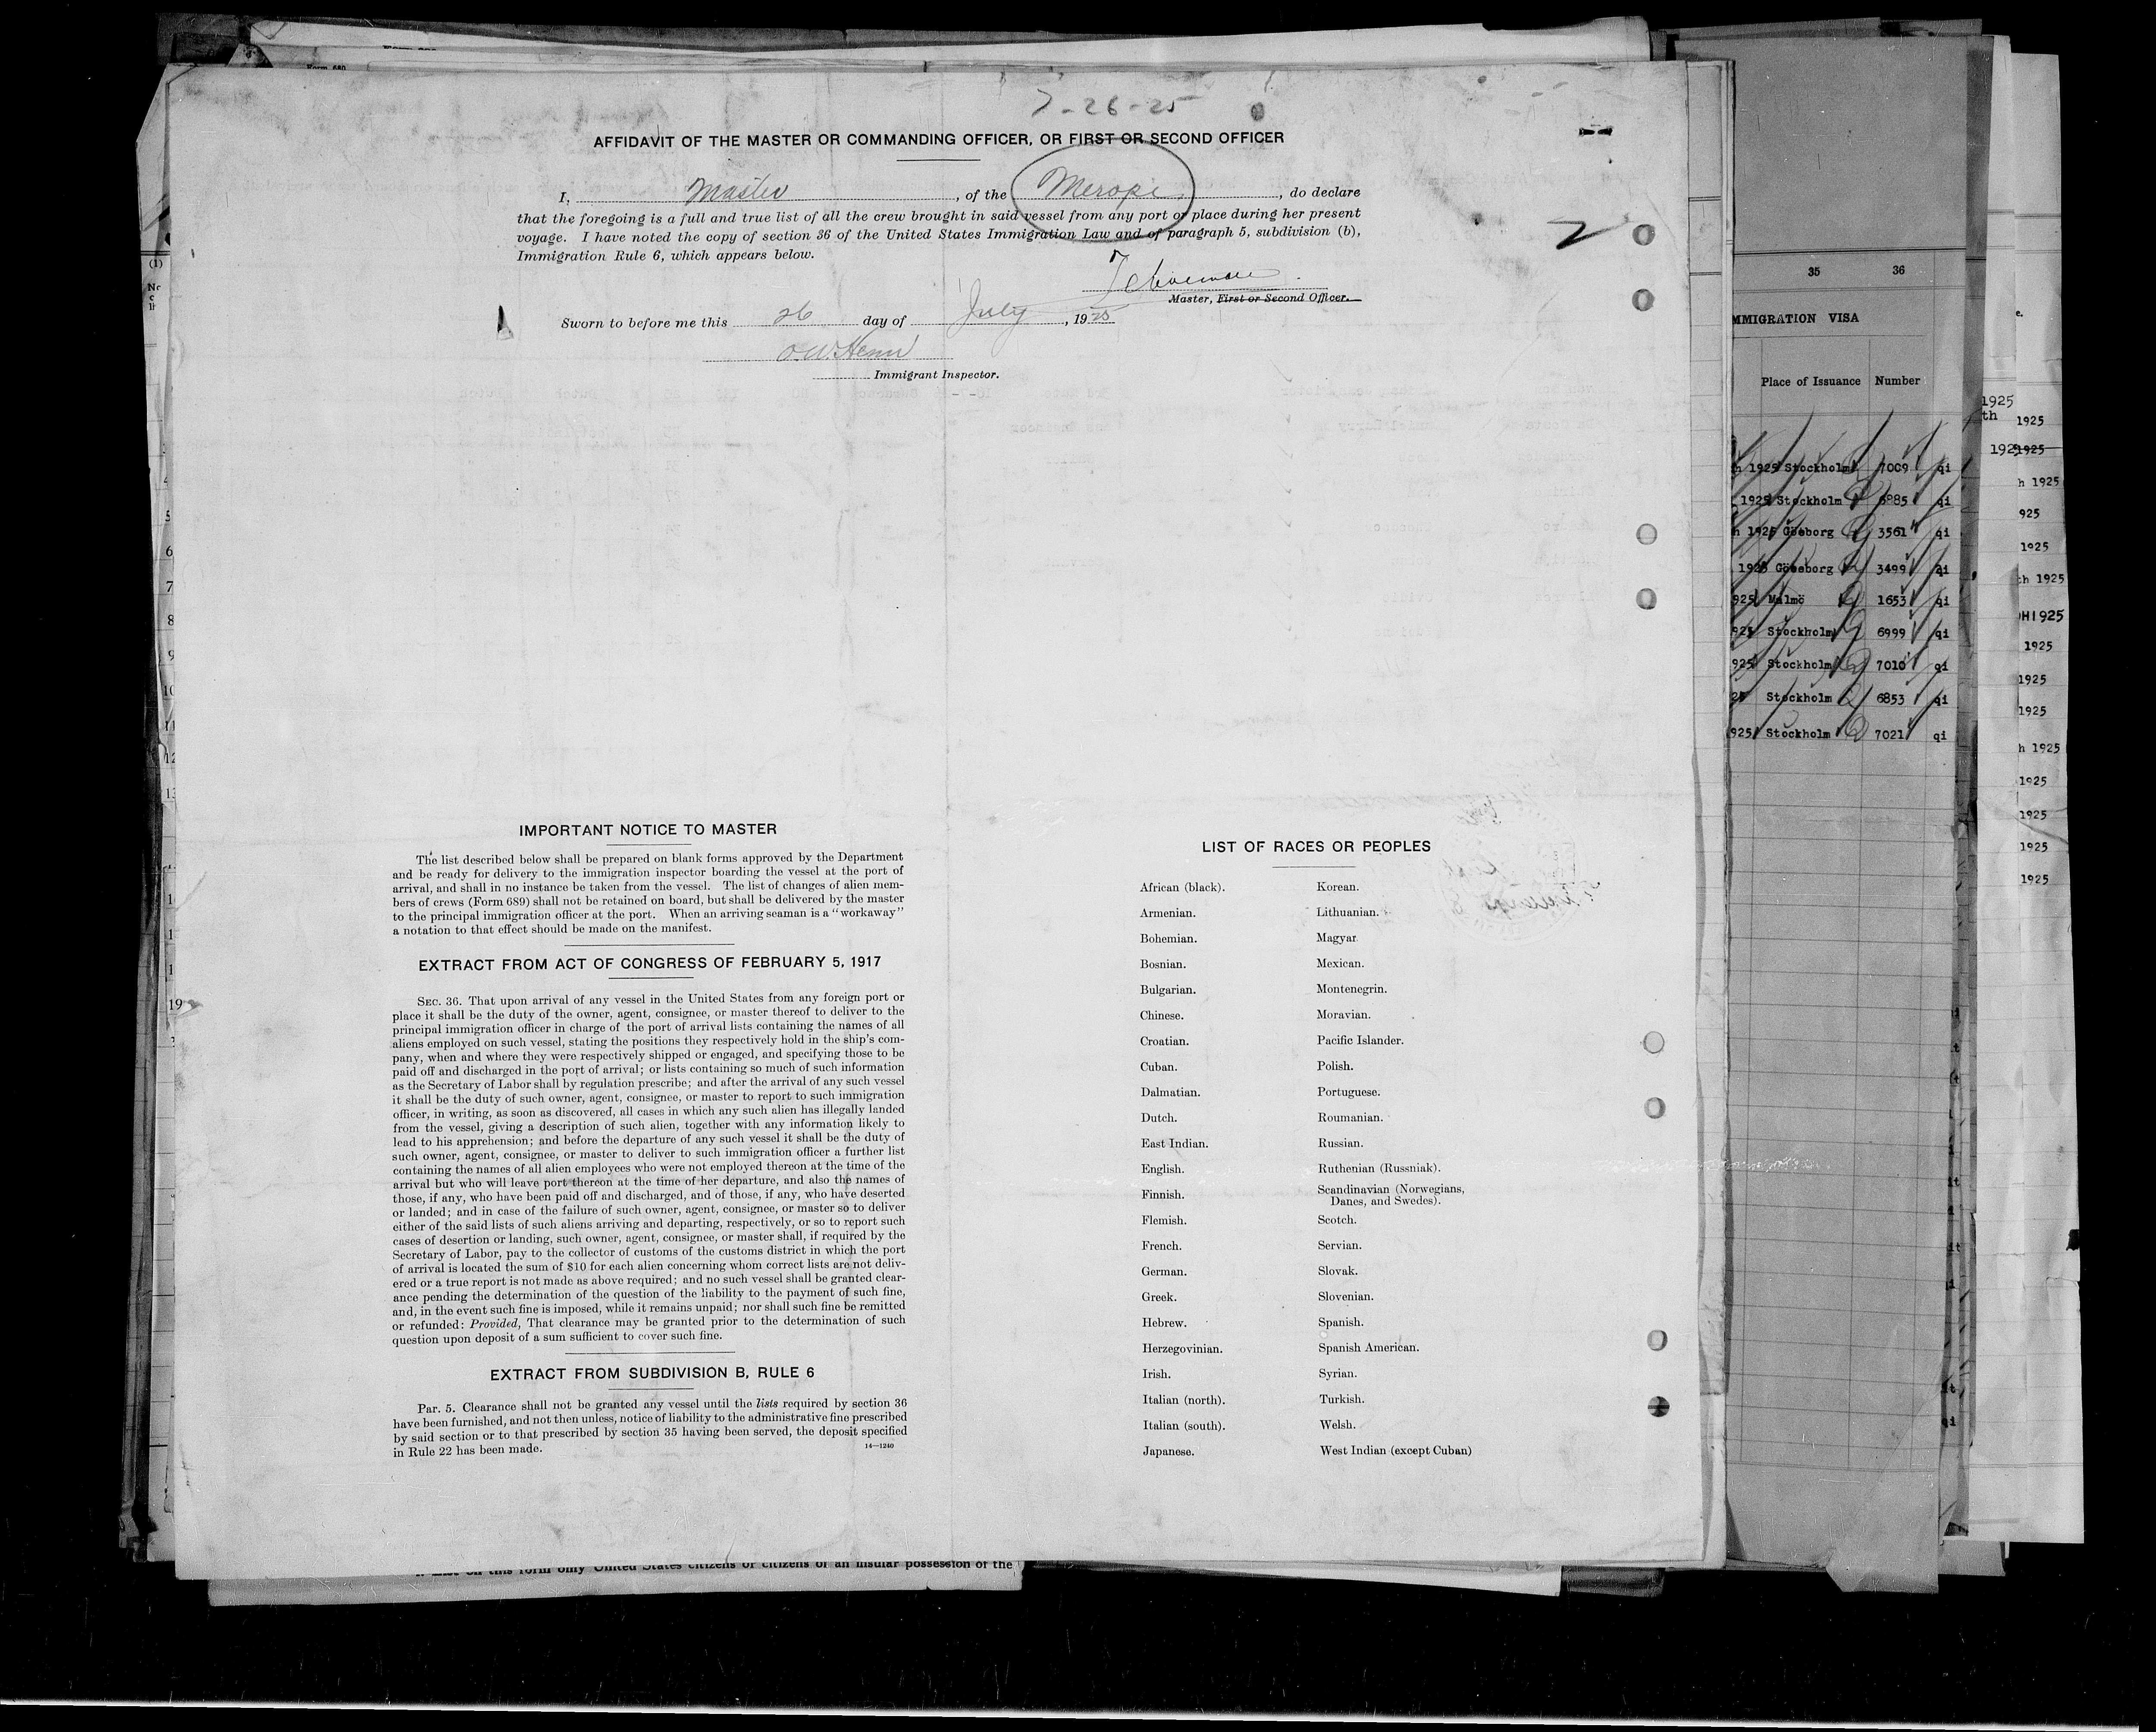 7-26-25
AFFIDAVIT OF THE MASTER OR COMMANDING OFFICER, OR FIRST OR SECOND OFFICER
I, Master, of the Merope, do declare
that the foregoing is a full and true list of all the crew brought in said vessel from any port or place during her present
voyage. I have noted the copy of section 36 of the United States Immigration Law and of paragraph 5, subdivision (b),
Immigration Rule 6, which appears below.
2
Master, First or Second Officer.
Sworn to before me this 26 day of July, 1925
Immigrant Inspector.
IMPORTANT NOTICE TO MASTER
The list described below shall be prepared on blank forms approved by the Department
and be ready for delivery to the immigration inspector boarding the vessel at the port of
arrival, and shall in no instance be taken from the vessel. The list of changes of alien mem-
bers of crews (Form 689) shall not be retained on board, but shall be delivered by the master
to the principal immigration officer at the port. When an arriving seaman is a "workaway"
a notation to that effect should be made on the manifest.
EXTRACT FROM ACT OF CONGRESS OF FEBRUARY 5, 1917
SEC. 36. That upon arrival of any vessel in the United States from any foreign port or
place it shall be the duty of the owner, agent, consignee, or master thereof to deliver to the
principal immigration officer in charge of the port of arrival lists containing the names of all
aliens employed on such vessel, stating the positions they respectively hold in the ship's com-
pany, when and where they were respectively shipped or engaged, and specifying those to be
paid off and discharged in the port of arrival; or lists containing so much of such information
as the Secretary of Labor shall by regulation prescribe; and after the arrival of any such vessel
it shall be the duty of such owner, agent, consignee, or master to report to such immigration
officer, in writing, as soon as discovered, all cases in which any such alien has illegally landed
from the vessel, giving a description of such alien, together with any information likely to
lead to his apprehension; and before the departure of any such vessel it shall be the duty of
such owner, agent, consignee, or master to deliver to such immigration officer a further list
containing the names of all alien employees who were not employed thereon at the time of the
arrival but who will leave port thereon at the time of her departure, and also the names of
those, if any, who have been paid off and discharged, and of those, if any, who have deserted
or landed; and in case of the failure of such owner, agent, consignee, or master so to deliver
either of the said lists of such aliens arriving and departing, respectively, or so to report such
cases of desertion or landing, such owner, agent, consignee, or master shall, if required by the
Secretary of Labor, pay to the collector of customs of the customs district in which the port
of arrival is located the sum of $10 for each alien concerning whom correct lists are not deliv-
ered or a true report is not made as above required; and no such vessel shall be granted clear-
ance pending the determination of the question of the liability to the payment of such fine,
and, in the event such fine is imposed, while it remains unpaid; nor shall such fine be remitted
or refunded: Provided, That clearance may be granted prior to the determination of such
question upon deposit of a sum sufficient to cover such fine.
EXTRACT FROM SUBDIVISION B, RULE 6
Par. 5. Clearance shall not be granted any vessel until the lists required by section 36
have been furnished, and not then unless, notice of liability to the administrative fine prescribed
by said section or to that prescribed by section 35 having been served, the deposit specified
in Rule 22 has been made.
14—1240
LIST OF RACES OR PEOPLES
African (black). Korean.
Armenian. Lithuanian.
Bohemian. Magyar.
Bosnian. Mexican.
Bulgarian. Montenegrin.
Chinese. Moravian.
Croatian. Pacific Islander.
Cuban. Polish.
Dalmatian. Portuguese.
Dutch. Roumanian.
East Indian. Russian.
English. Ruthenian (Russniak).
Finnish. Scandinavian (Norwegians,
Danes, and Swedes).
Flemish. Scotch.
French. Servian.
German. Slovak.
Greek. Slovenian.
Hebrew. Spanish.
Herzegovinian. Spanish American.
Irish. Syrian.
Italian (north). Turkish.
Italian (south). Welsh.
Japanese. West Indian (except Cuban)
35 36
IMMIGRATION VISA
Place of Issuance Number
h 1925 Stockholm 7009 qi
1925 Stockholm 6885 qi
h 1925 Göteborg 3561 qi
1925 Göteborg 3499 qi
925 Malmö 1653 qi
925 Stockholm 6999 qi
925 Stockholm 7010 qi
25 Stockholm 6853 qi
925 Stockholm 7021 qi
1925
th 1925
1925
h 1925
925
1925
th 1925
H1925
1925
1925
1925
h 1925
1925
1925
1925
1925
on this form only United States citizens or citizens of an insular possession of the